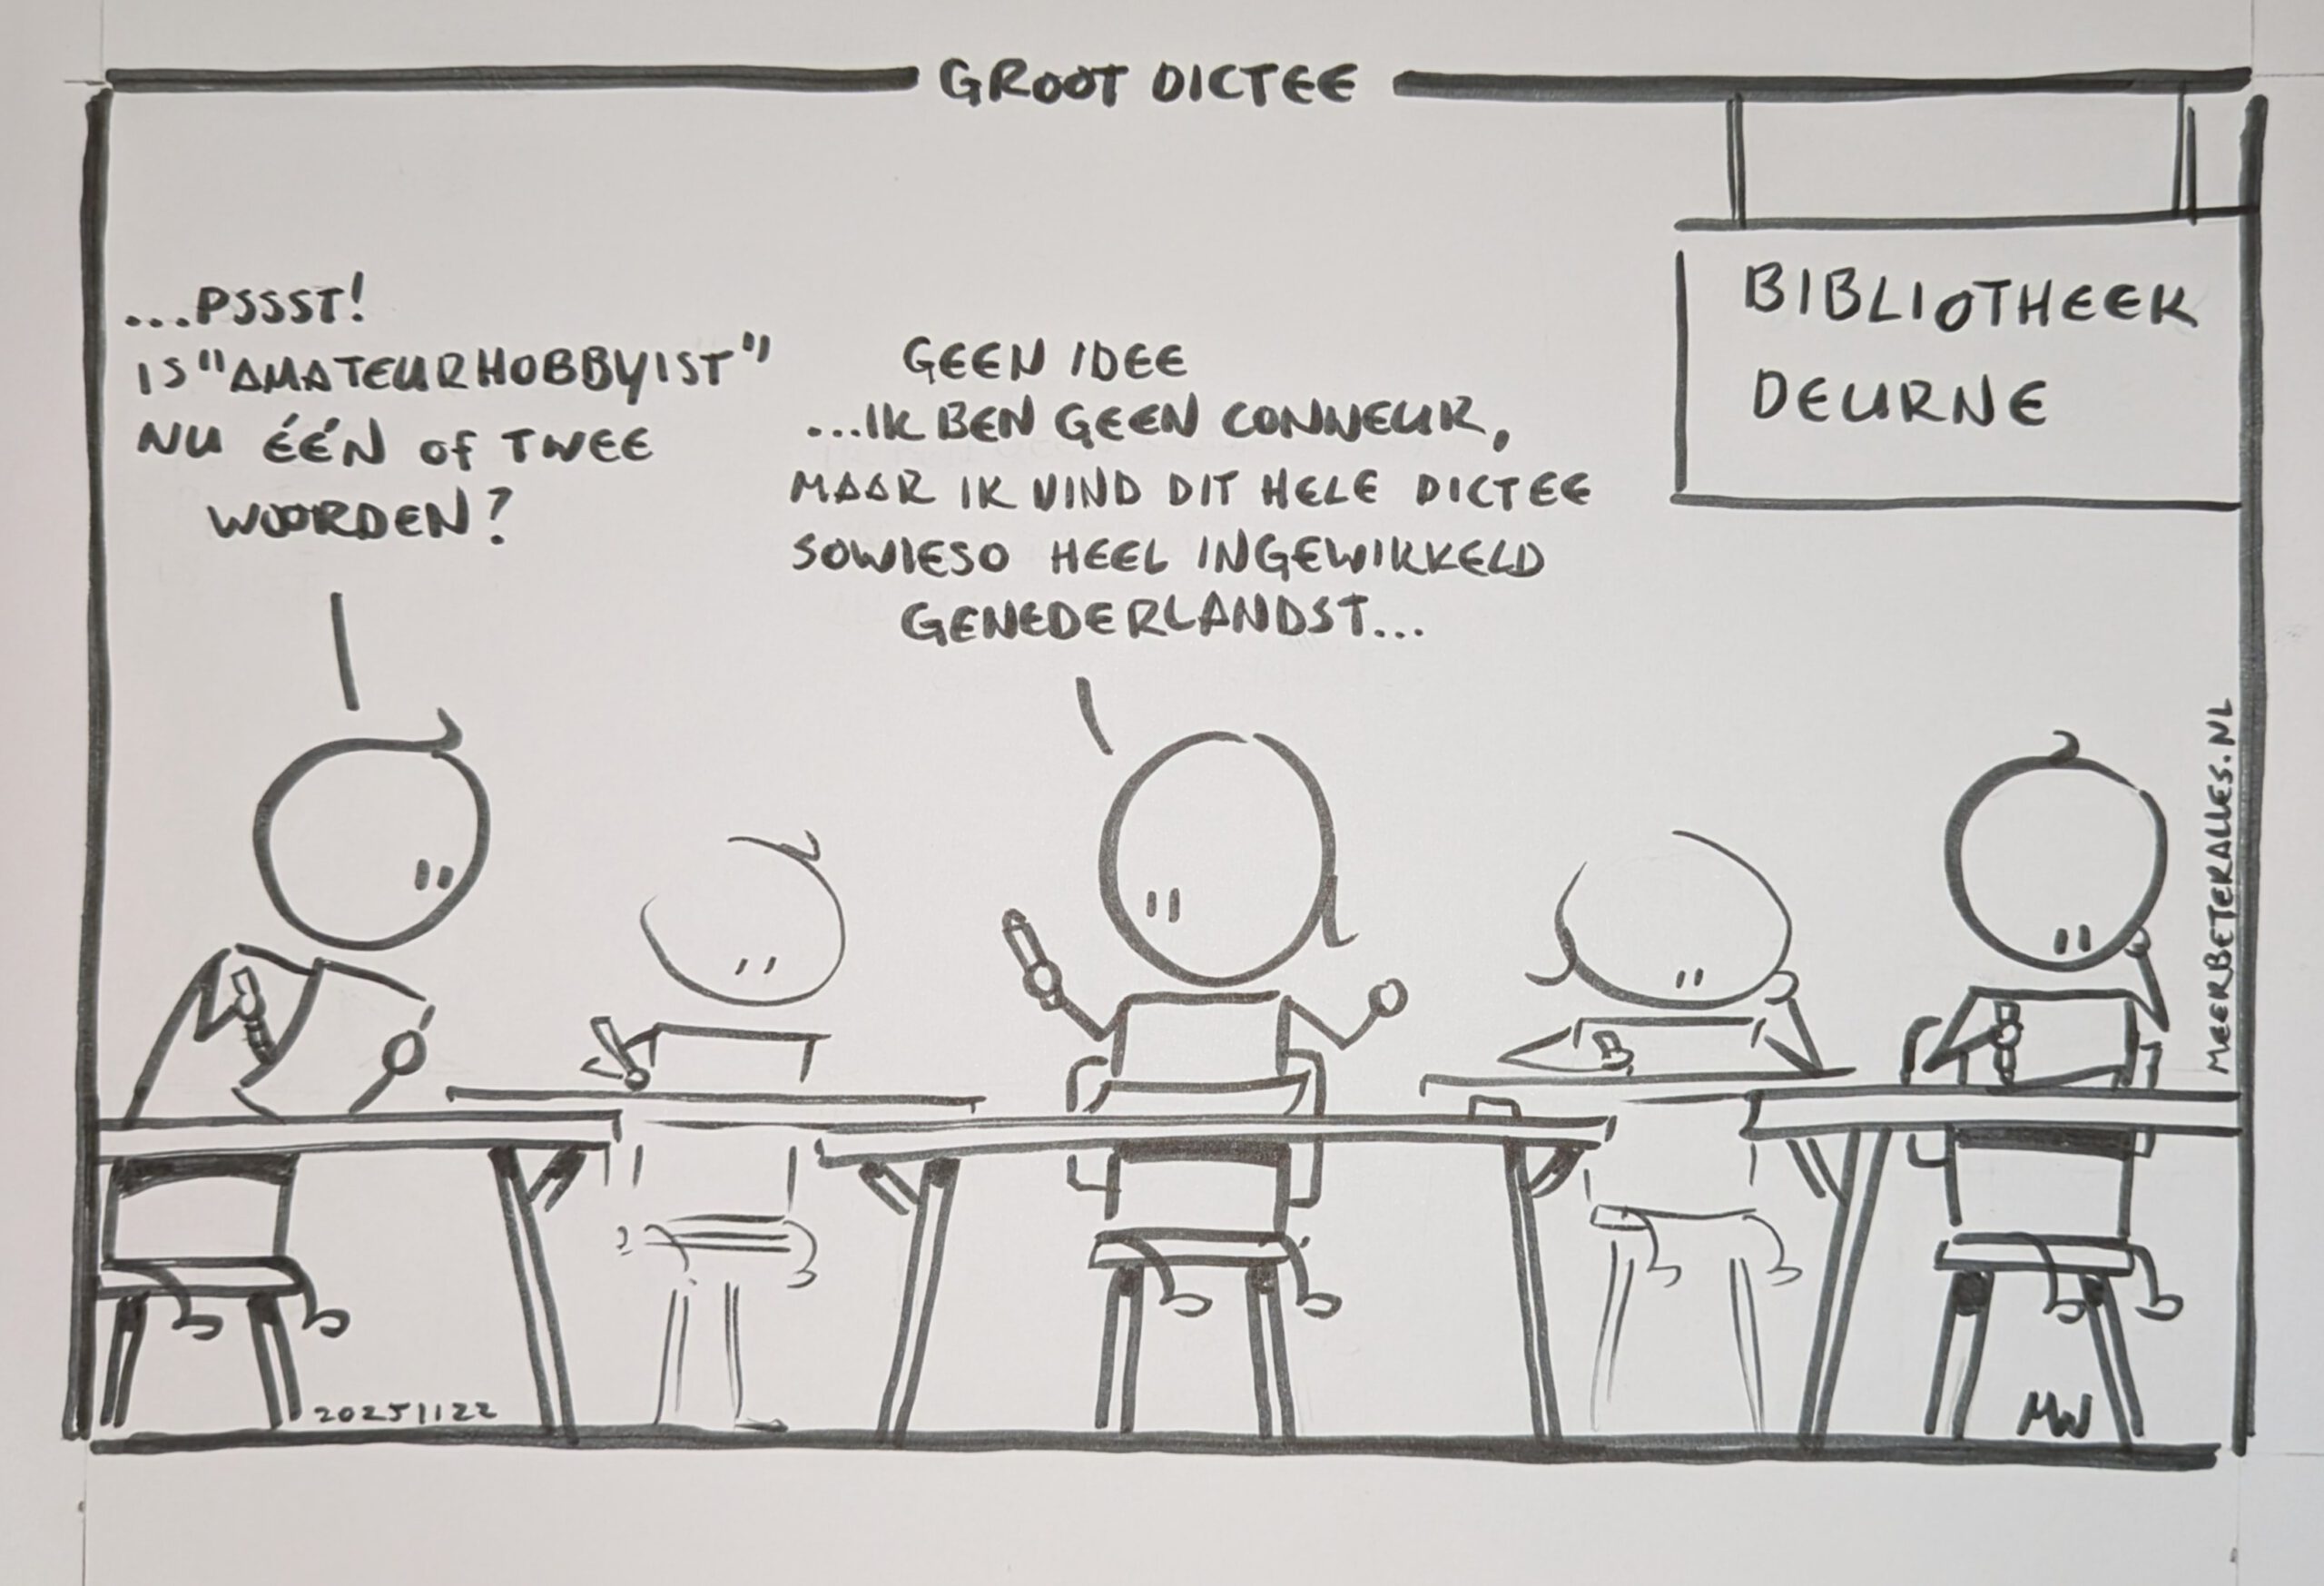 GROOT DICTEE
...PSSST!
IS "AMATEURHOBBYIST"
NU ÉÉN of TWEE
WOORDEN?
GEEN IDEE
...IK BEN GEEN CONNEUR,
MAAR IK VIND DIT HELE DICTEE
SOWIESO HEEL INGEWIKKELD
GENEDERLANDST...
BIBLIOTHEEK
DEURNE
MEERBETERALLES.NL
20251122
MW